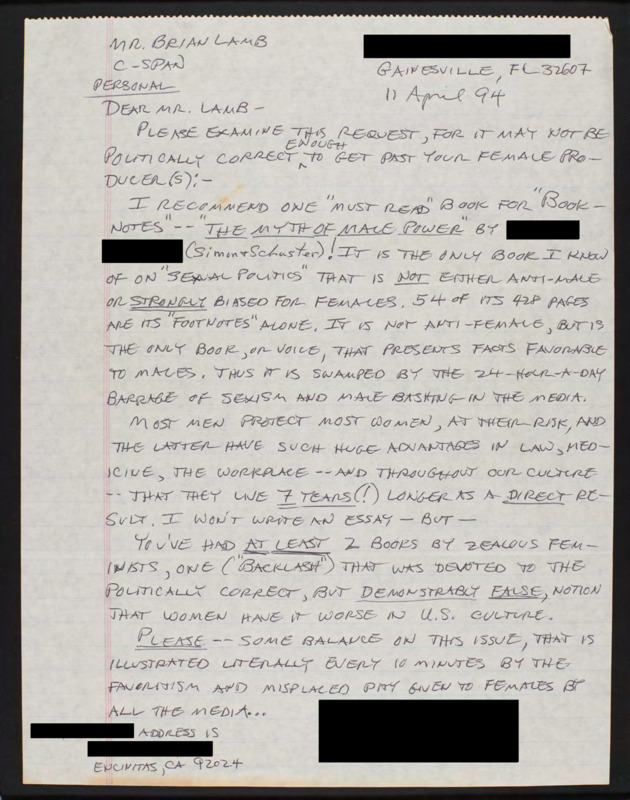 MR. BRIAN LAMB
C-SPAN
PERSONAL
GAINESVILLE, FL 32607
11 April 94
DEAR MR. LAMB-
PLEASE EXAMINE THIS REQUEST, FOR IT MAY NOT BE
POLITICALLY CORRECT ENOUGH TO GET PAST YOUR FEMALE PRO-
DUCER(S):-
I RECOMMEND ONE "MUST READ" BOOK FOR "BOOK-
NOTES"-- "THE MYTH OF MALE POWER" BY
(Simon+Schuster)! IT IS THE ONLY BOOK I KNOW
OF ON "SEXUAL POLITICS" THAT IS NOT EITHER ANTI-MALE
OR STRONGLY BIASED FOR FEMALES. 54 OF ITS 428 PAGES
ARE ITS "FOOTNOTES" ALONE. IT IS NOT ANTI-FEMALE, BUT IS
THE ONLY BOOK, OR VOICE, THAT PRESENTS FACTS FAVORABLE
TO MALES. THUS IT IS SWAMPED BY THE 24-HOUR-A-DAY
BARRAGE OF SEXISM AND MALE BASHING IN THE MEDIA.
MOST MEN PROTECT MOST WOMEN, AT THEIR RISK, AND
THE LATTER HAVE SUCH HUGE ADVANTAGES IN LAW, MED-
ICINE, THE WORKPLACE -- AND THROUGHOUT OUR CULTURE
-- THAT THEY LIVE 7 YEARS(!) LONGER AS A DIRECT RE-
SULT. I WON'T WRITE AN ESSAY - BUT -
YOU'VE HAD AT LEAST 2 BOOKS BY ZEALOUS FEM-
INISTS, ONE ("BACKLASH") THAT WAS DEVOTED TO THE
POLITICALLY CORRECT, BUT DEMONSTRABLY FALSE, NOTION
THAT WOMEN HAVE IT WORSE IN U.S. CULTURE.
PLEASE -- SOME BALANCE ON THIS ISSUE, THAT IS
ILLUSTRATED LITERALLY EVERY 10 MINUTES BY THE
FAVORITISM AND MISPLACED PITY GIVEN TO FEMALES BY
ALL THE MEDIA...
ADDRESS IS
ENCINITAS, CA 92024